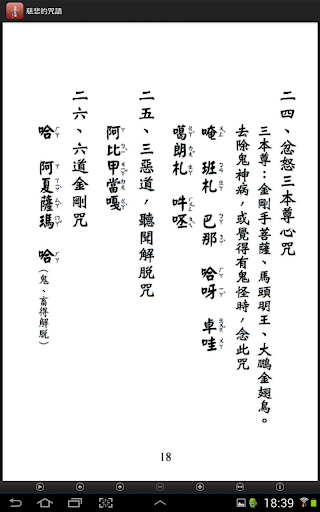 慈悲的咒語
二四、忿怒三本尊心咒
三本尊：金剛手菩薩、馬頭明王、大鵬金翅鳥。
去除鬼神病，或覺得有鬼怪時，念此咒
唵 班札 巴那 哈呀 卓哇
噶朗札 吽呸
二五、三惡道，聽聞解脫咒
阿比甲當嘎
二六、六道金剛咒
哈 阿夏薩瑪 哈（鬼、畜得解脫）
18
18:39